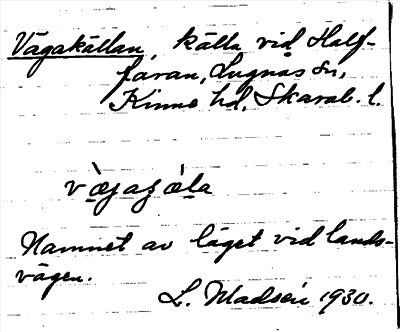 Vägakällan, källa vid Half-
faran, Lugnås sn,
Kinne hd, Skarab. l.
Namnet av läget vid lands-
vägen.
L. Madsén 1930.